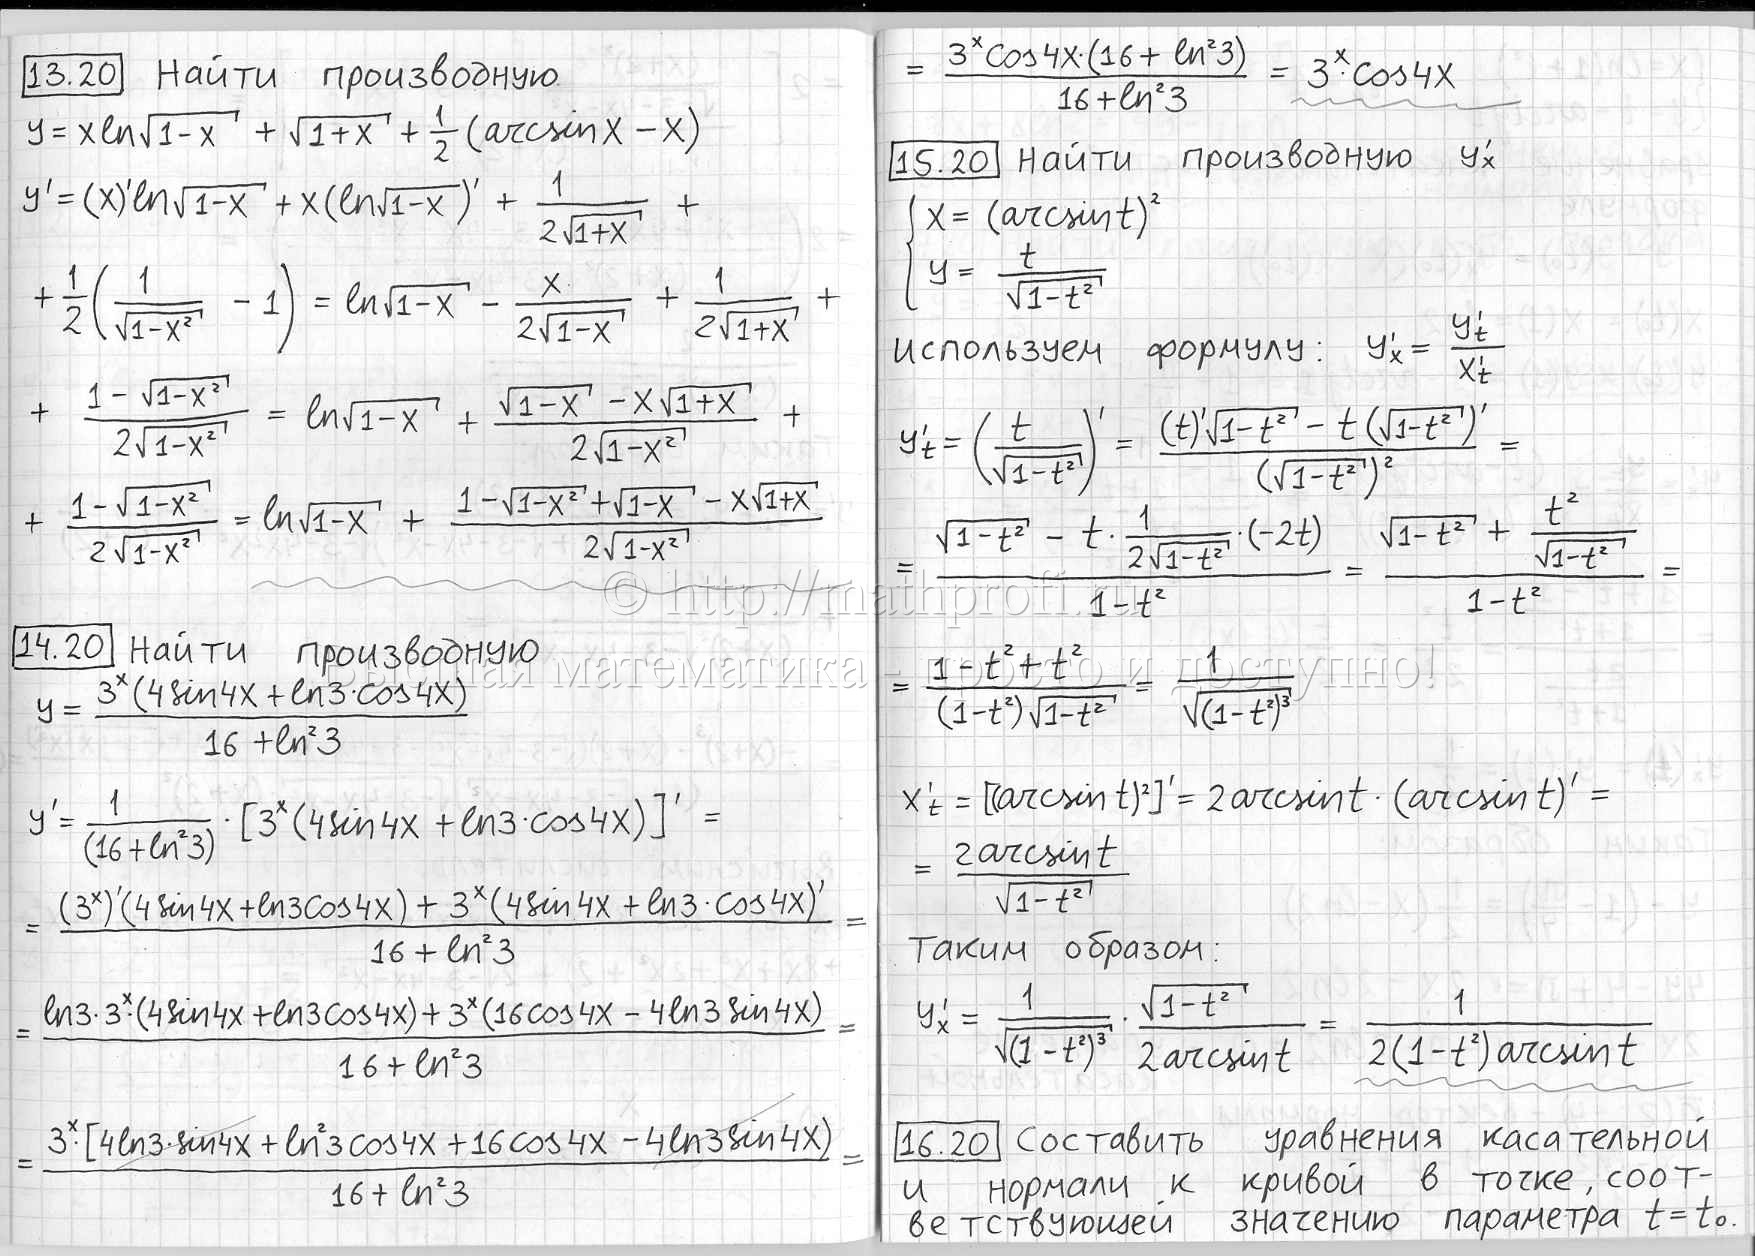 13.20 Найти производную
y = x ln√(1-x) + √(1+x) + 1/2 (arcsinx - x)
y' = (x)' ln√(1-x) + x(ln√(1-x))' + 1/(2√(1+x)) +
+ 1/2 (1/√(1-x²) - 1) = ln√(1-x) - x/(2√(1-x)) + 1/(2√(1+x)) +
+ (1-√(1-x²))/(2√(1-x²)) = ln√(1-x) + (√(1-x) - x√(1+x))/(2√(1-x²)) +
+ (1-√(1-x²))/(2√(1-x²)) = ln√(1-x) + (1-√(1-x²)+√(1-x) - x√(1+x))/(2√(1-x²))
14.20 Найти производную
y = 3ˣ(4sin4x + ln3·cos4x)/(16+ln²3)
y' = 1/(16+ln²3) · [3ˣ(4sin4x + ln3·cos4x)]' =
= ((3ˣ)'(4sin4x+ln3cos4x) + 3ˣ(4sin4x + ln3·cos4x)')/(16+ln²3) =
= (ln3·3ˣ·(4sin4x+ln3cos4x) + 3ˣ(16cos4x - 4ln3sin4x))/(16+ln²3) =
= 3ˣ·[4ln3·sin4x + ln²3cos4x + 16cos4x - 4ln3sin4x)/(16+ln²3) =
= 3ˣcos4x·(16+ln²3)/(16+ln²3) = 3ˣ·cos4x
15.20 Найти производную y'ₓ
{ x = (arcsint)²
y = t/√(1-t²)
используем формулу: y'ₓ = y'ₜ/x'ₜ
y'ₜ = (t/√(1-t²))' = ((t)'√(1-t²) - t(√(1-t²))')/(√(1-t²))² =
= (√(1-t²) - t·1/(2√(1-t²))·(-2t))/(1-t²) = (√(1-t²) + t²/√(1-t²))/(1-t²) =
= (1-t²+t²)/((1-t²)√(1-t²)) = 1/√((1-t²)³)
x'ₜ = [(arcsint)²]' = 2arcsint·(arcsint)' =
= 2arcsint/√(1-t²)
Таким образом:
y'ₓ = 1/√((1-t²)³) · √(1-t²)/(2arcsint) = 1/(2(1-t²)arcsint)
16.20 Составить уравнения касательной
и нормали к кривой в точке, соот-
ветствующей значению параметра t=t₀.
© http://mathprofi.ru
Высшая математика - просто и доступно!